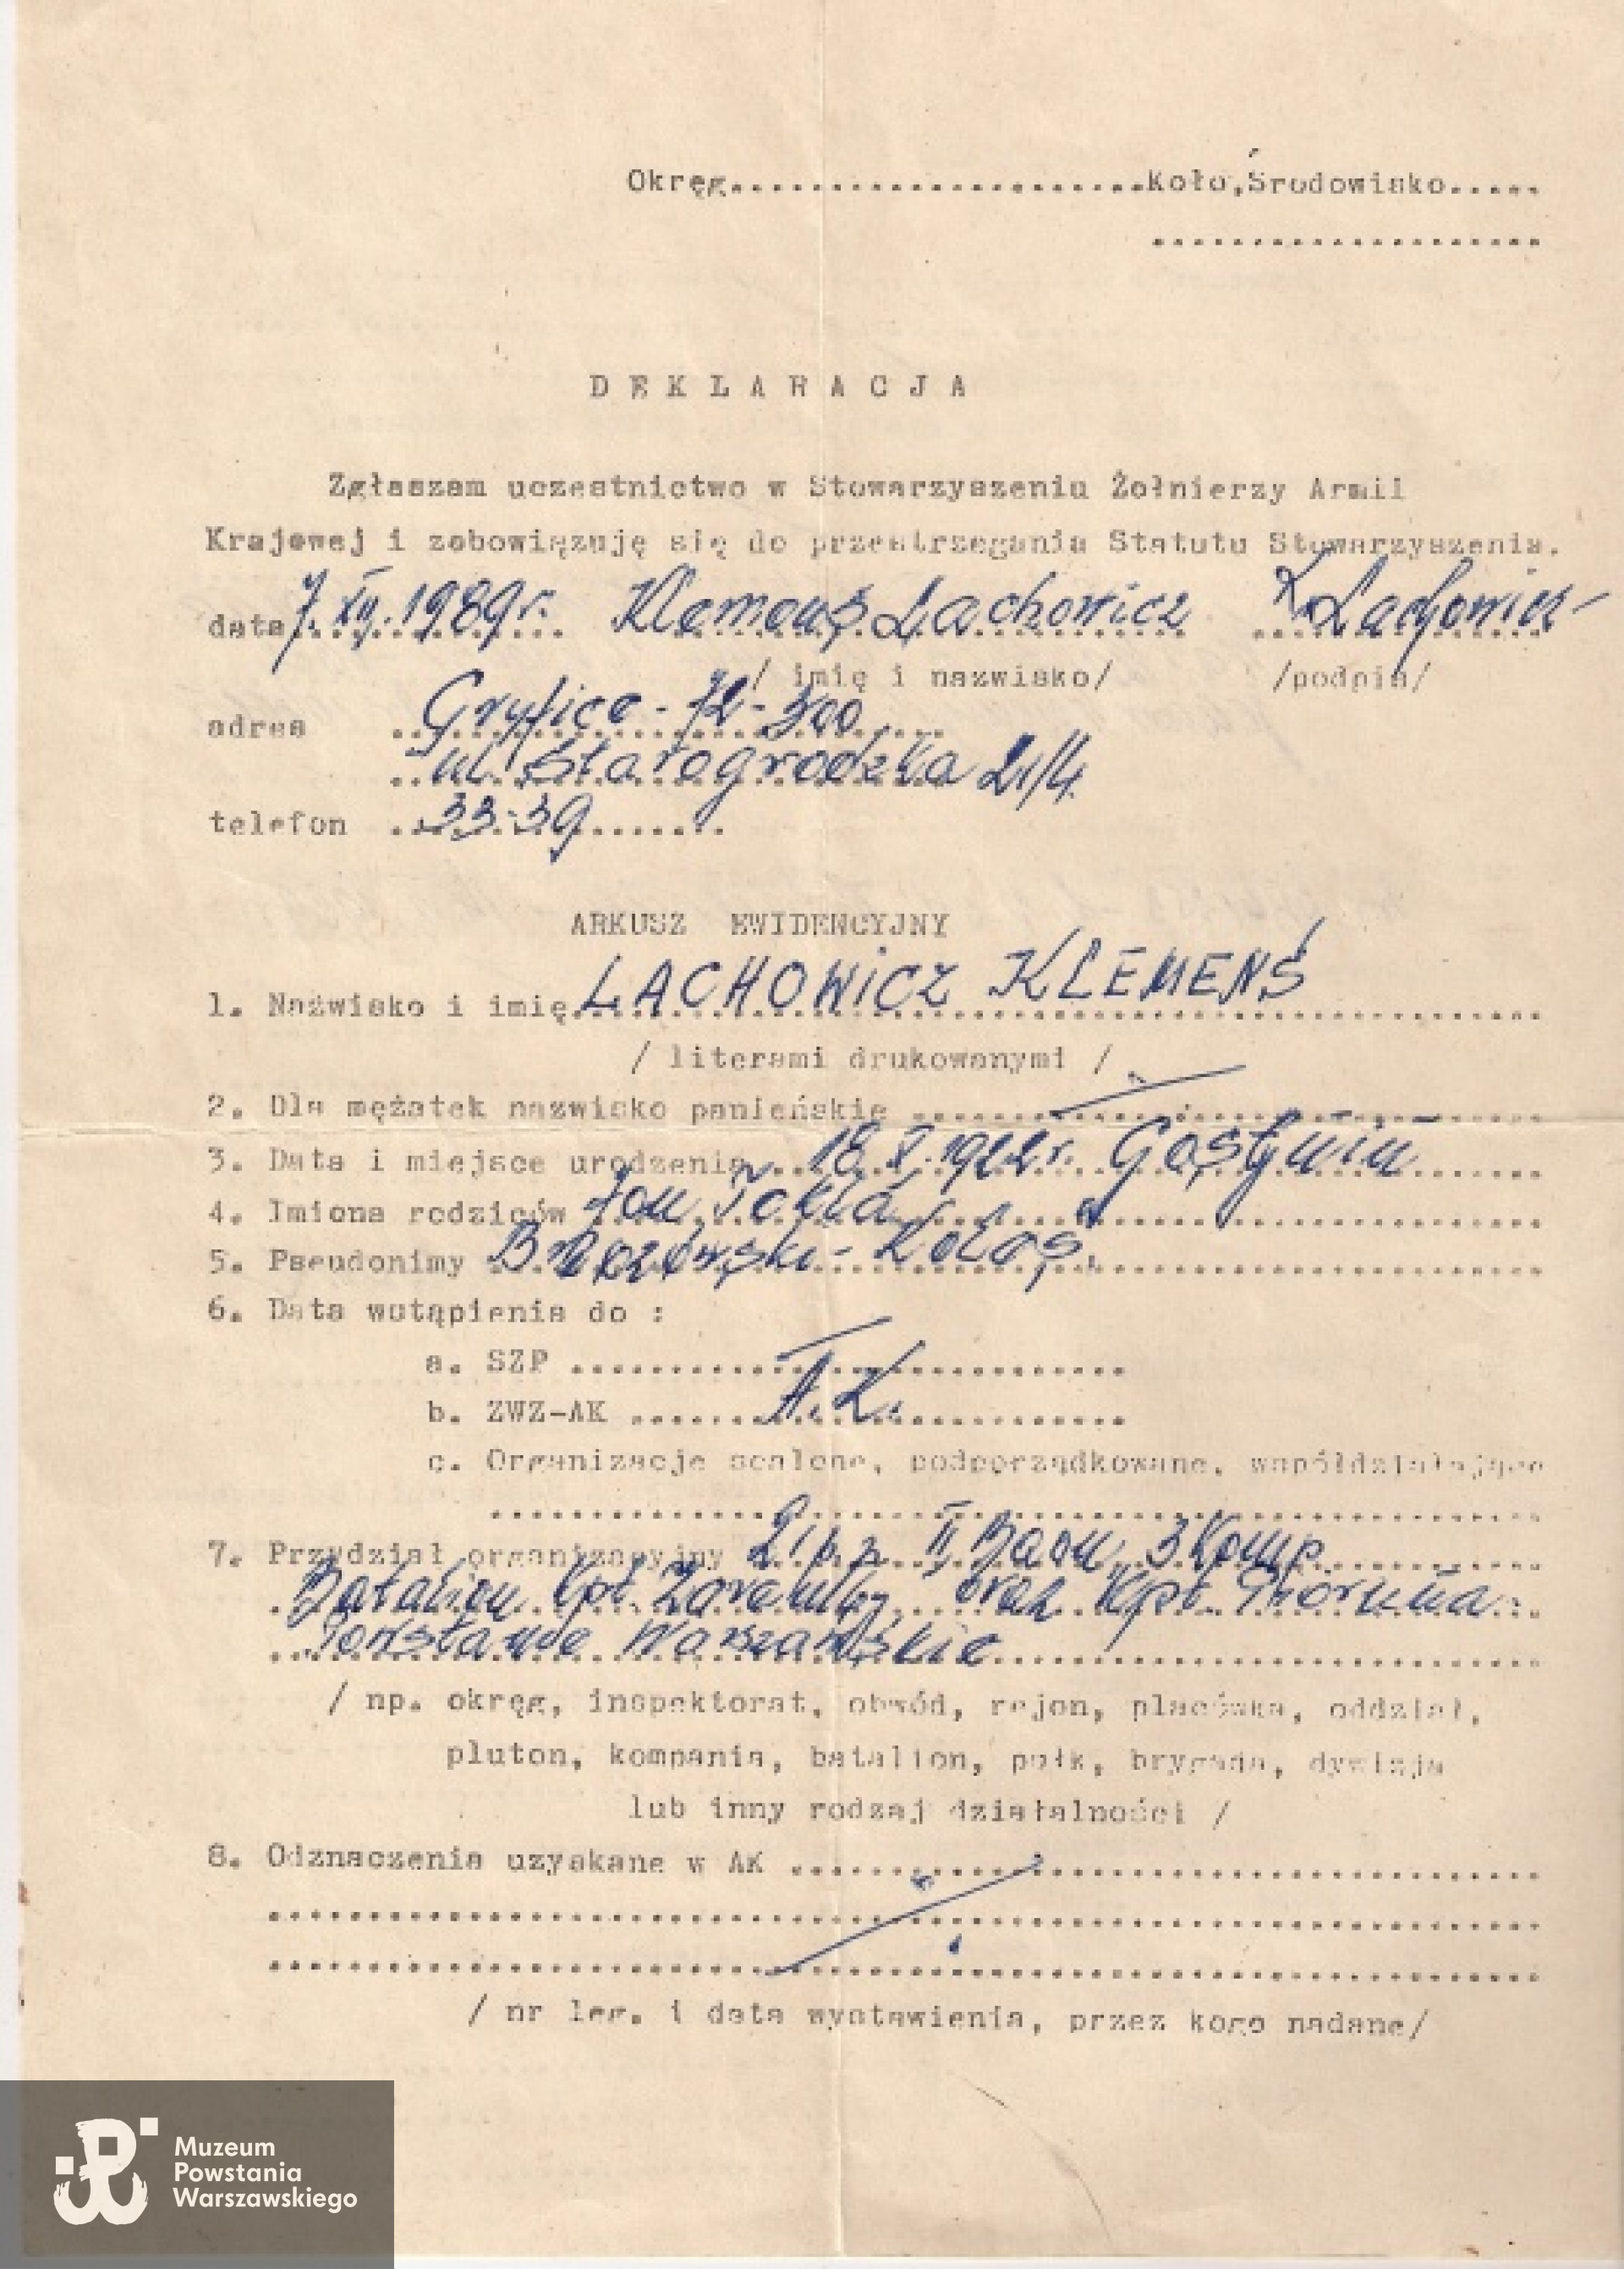 Okręg.........................Koło,Środowisko.....
....................
D E K L A R A C J A
Zgłaszam uczestnictwo w Stowarzyszeniu Żołnierzy Armii
Krajowej i zobowiązuję się do przestrzegania Statutu Stowarzyszenia.
data 7.XII.1989r. Klemenś Lachowicz K. Lachowicz
/ imię i nazwisko/ /podpis/
adres Gryfice - 72-300
ul. Starogrodzka 21/4
telefon 33-39
ARKUSZ EWIDENCYJNY
1. Nazwisko i imię LACHOWICZ KLEMENŚ
/ literami drukowanymi /
2. Dla mężatek nazwisko panieńskie
3. Data i miejsce urodzenia 18.X.1922r. Gostynin
4. Imiona rodziców Jan Tekla
5. Pseudonimy Brzozowski - Kolas
6. Data wstąpienia do :
a. SZP
b. ZWZ-AK A.K.
c. Organizacje scalone, podporządkowane, współdziałające
7. Przydział organizacyjny 21 p.p. II Baon 3 Komp.
Batalion Kpt. Zaremby oraz Kpt. Pioruna
Powstanie Warszawskie
/ np. okręg, inspektorat, obwód, rejon, placówka, oddział,
pluton, kompania, batalion, pułk, brygada, dywizja
lub inny rodzaj działalności /
8. Odznaczenia uzyskane w AK
/ nr leg. i data wystawienia, przez kogo nadane/
Muzeum
Powstania
Warszawskiego